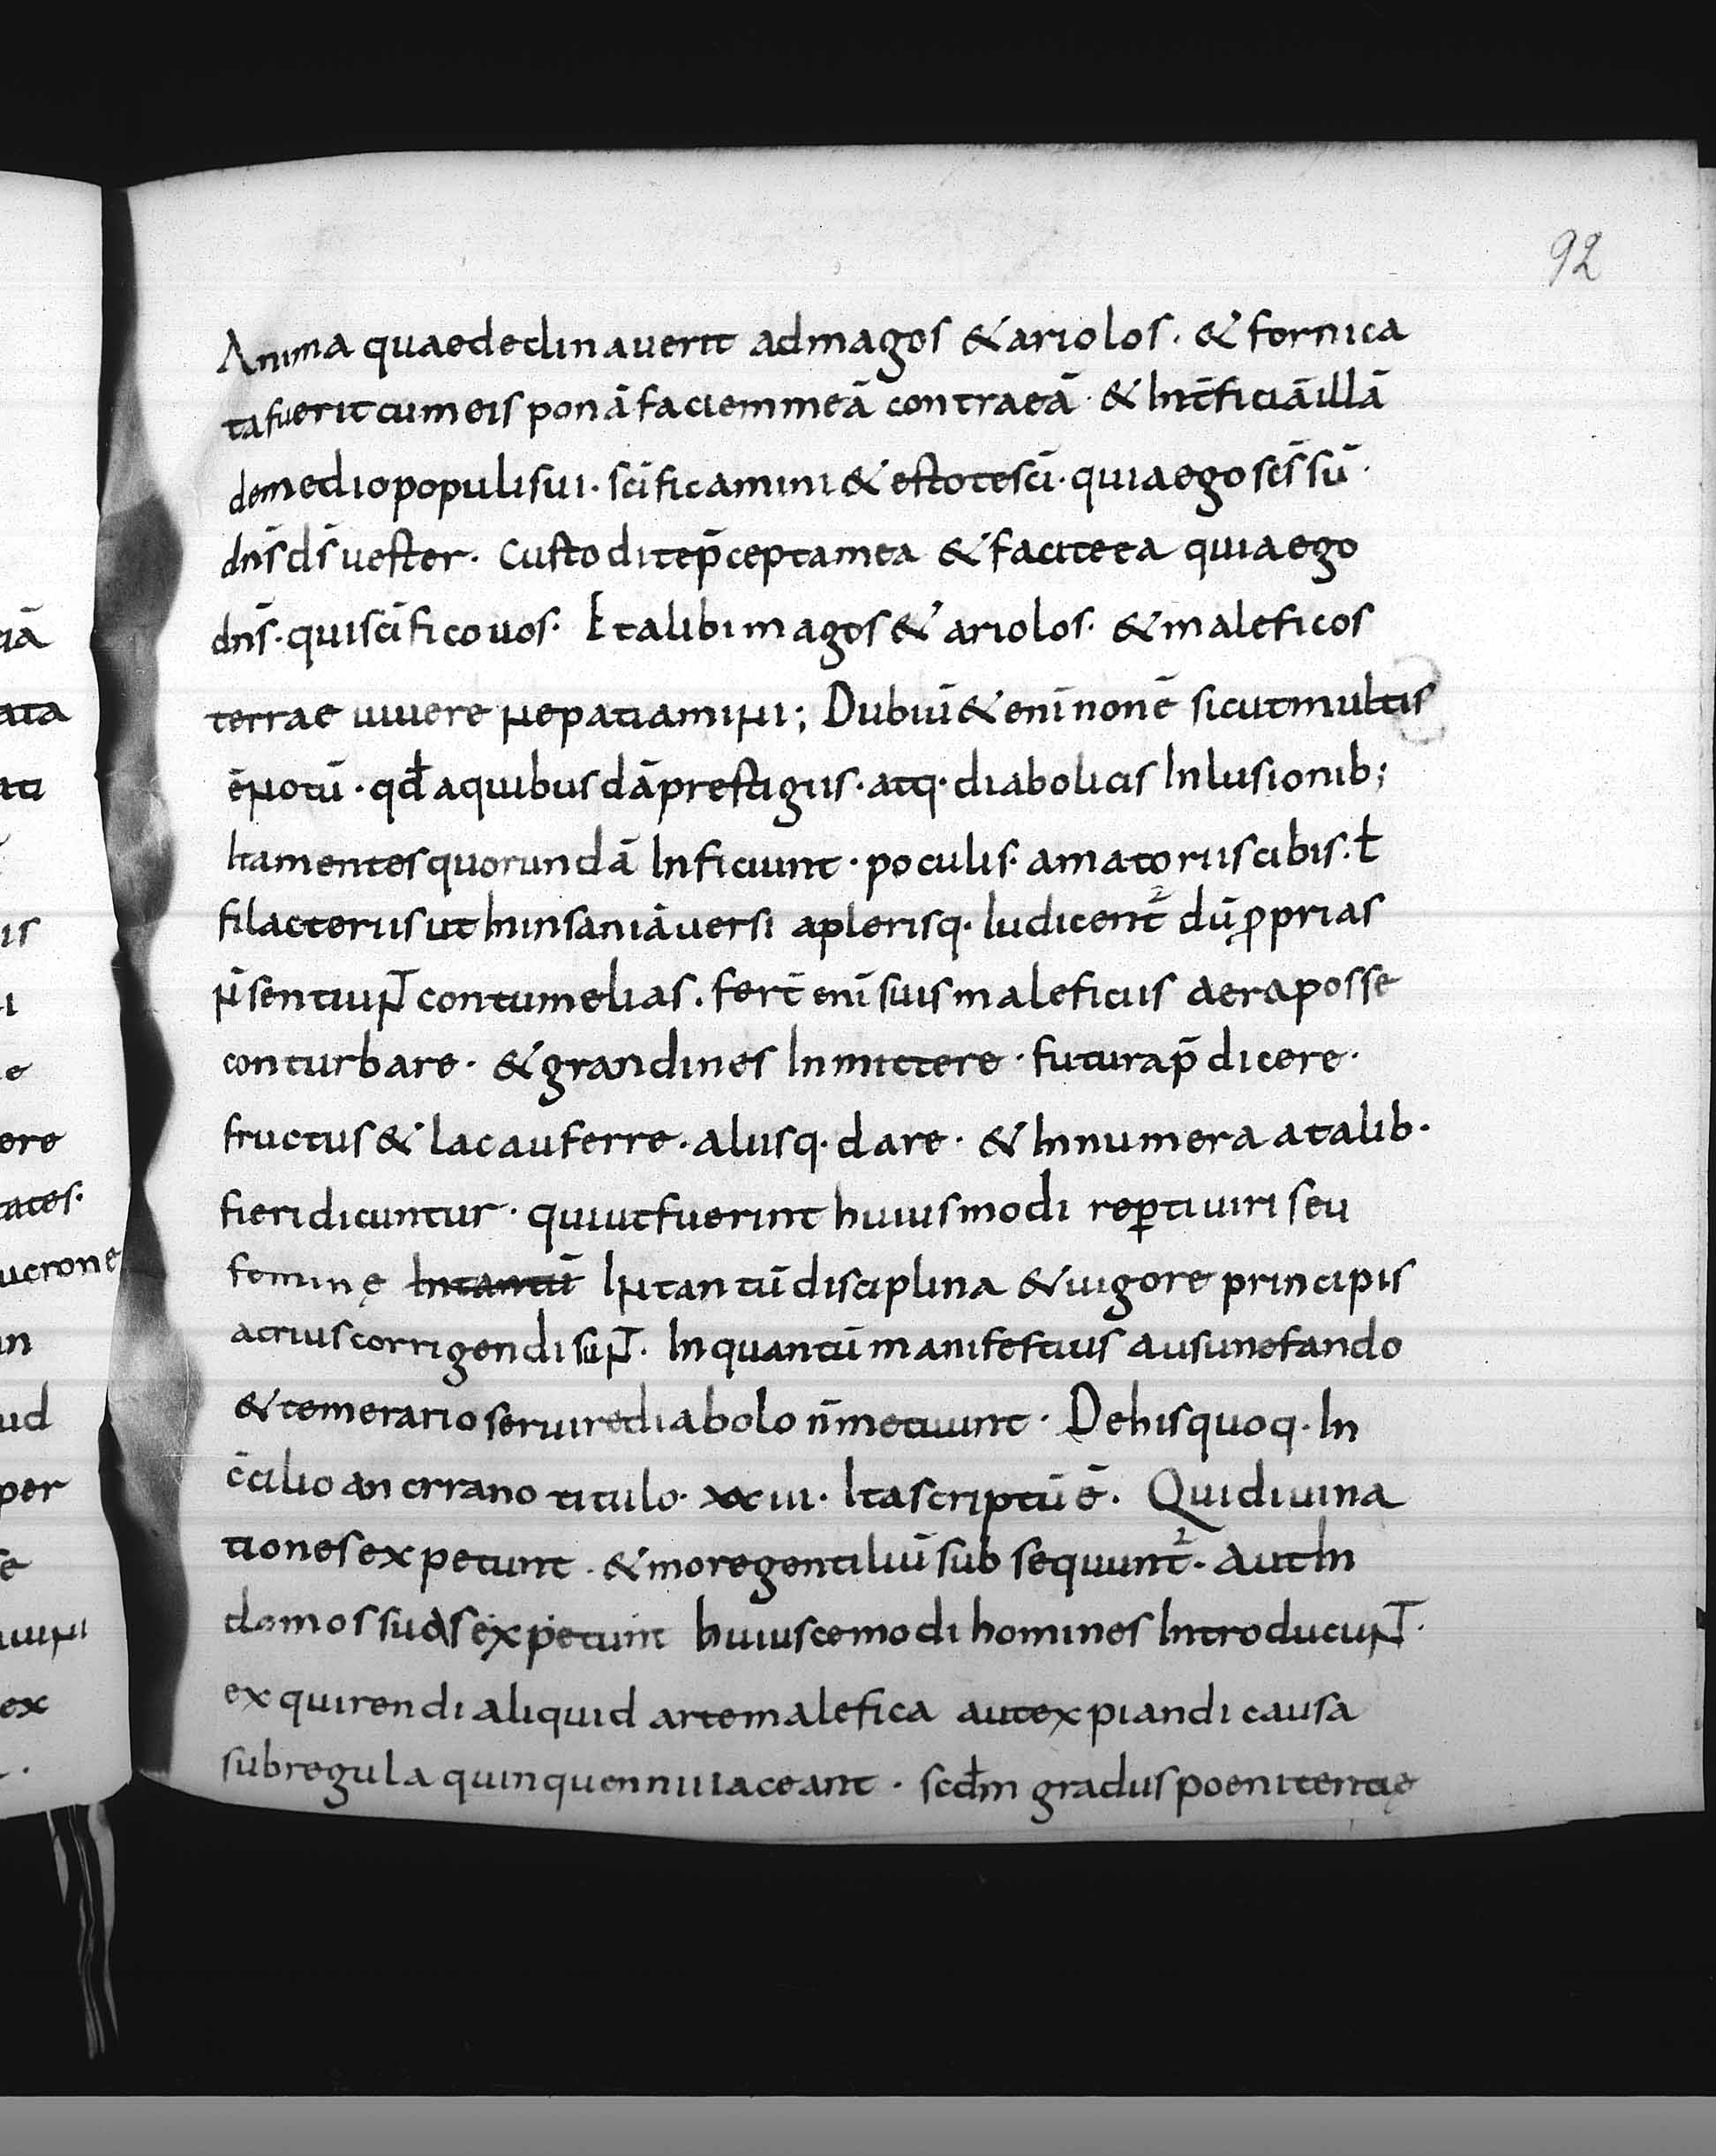 92
Anima quae declinauerit ad magos & ariolos · & fornica
ta fuerit cum eis ponā faciem meā contra eā · & Int̄ficiā illā
de medio populi sui · sc̄ificamini & estote sc̄i · quia ego sc̄s sū ·
dn̄s ds̄ uester · Custodite p̄cepta mea & facite ea quia ego
dn̄s · qui sc̄ifico uos · Et alibi magos & ariolos · & maleficos
terrae uiuere ne patiamini ; Dubiū & enī non ē sicut multis
ē notū · qd̄ a quibusdā prestigiis · atq · diabolicis Inlusionib ;
Ita mentes quorundā Inficiunt · poculis · amatoriis cibis · ł
filacteriis ut In insaniā uersi a plerisq · Iudicent̄ dū ꝓprias
n̄ sentiuNT contumelias · fert̄ enī suis maleficiis aera posse
conturbare · & grandines Inmittere · futura p̄dicere ·
fructus & lac auferre · aliisq · dare · & Innumera a talib ·
fieri dicuntur · qui ut fuerint huiusmodi reꝑti uiri seu
feminę Intantū Intantū disciplina & uigore principis
acrius corrigendi suNT · Inquantū manifestius ausu nefando
& temerario seruire diabolo n̄ metuunt · De his quoq · In
c̄cilio ancirano titulo · xxiii · Ita scriptū ē · Qui diuina
tiones expetunt · & more gentiliū subsequunt̄ · aut In
domos suas expetunt huiuscemodi homines IntroducuNT ·
exquirendi aliquid arte malefica aut expiandi causa
sub regula quinquennii iaceant · scd̄m gradus poenitentię